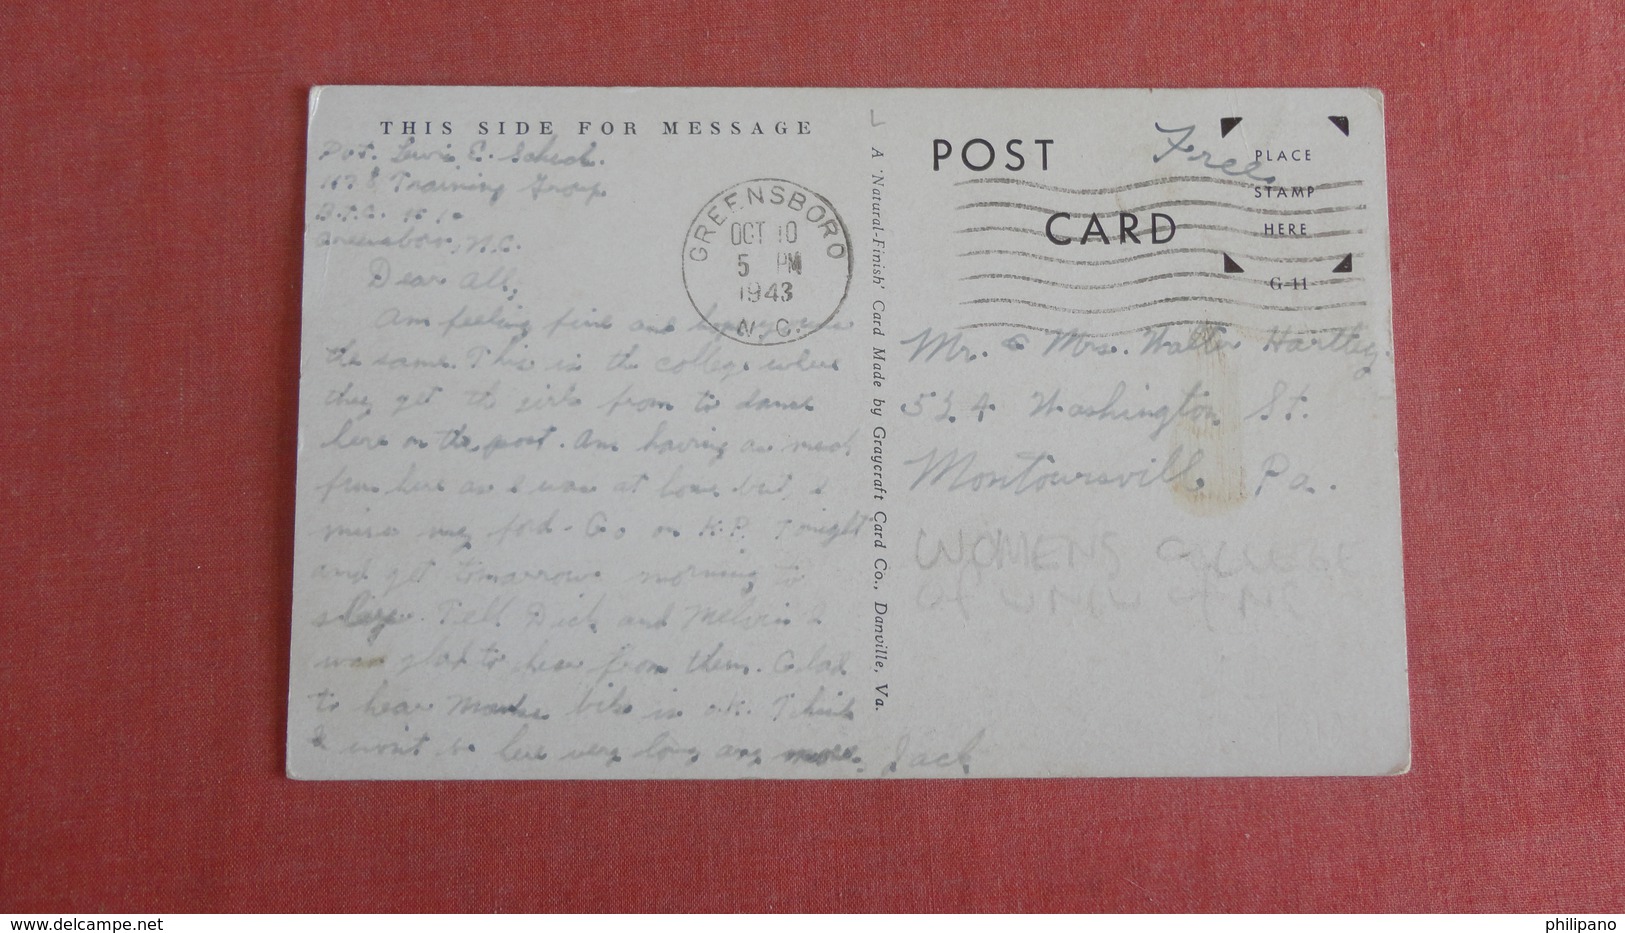 THIS SIDE FOR MESSAGE
Pvt. Lewis E.
Training Group
Greensboro, N.C.
Dear All,
Am feeling fine and you
the same. This is the college where
they get the girls from to dance
here on the post. Am having as much
fun here as I was at home but, I
miss my ford. Go on K.P. Tonight
and get tomarrows morning to
sleep. Tell Dick and Melvin I
was glad to hear from them. Glad
to hear bike is O.K. Think
I won't be here very long any more. Jack
GREENSBORO
OCT 10
5 PM
1943
N.C.
A 'Natural-Finish' Card Made by Graycraft Card Co., Danville, Va.
POST
CARD
Free
PLACE
STAMP
HERE
G-11
Mr. & Mrs. Walter Hartley
524 Washington St.
Montoursville, Pa.
WOMENS COLLEGE
OF UNIV OF NC
delcampe.net
philipano